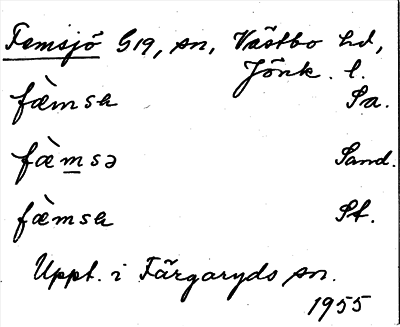 Femsjö S19, sn, Västbo hd,
Jönk. l.
fæ̀msa Sa.
fæ̀m̲sə Sand.
fæ̀msa St.
Uppt. i Färgaryds sn.
1955